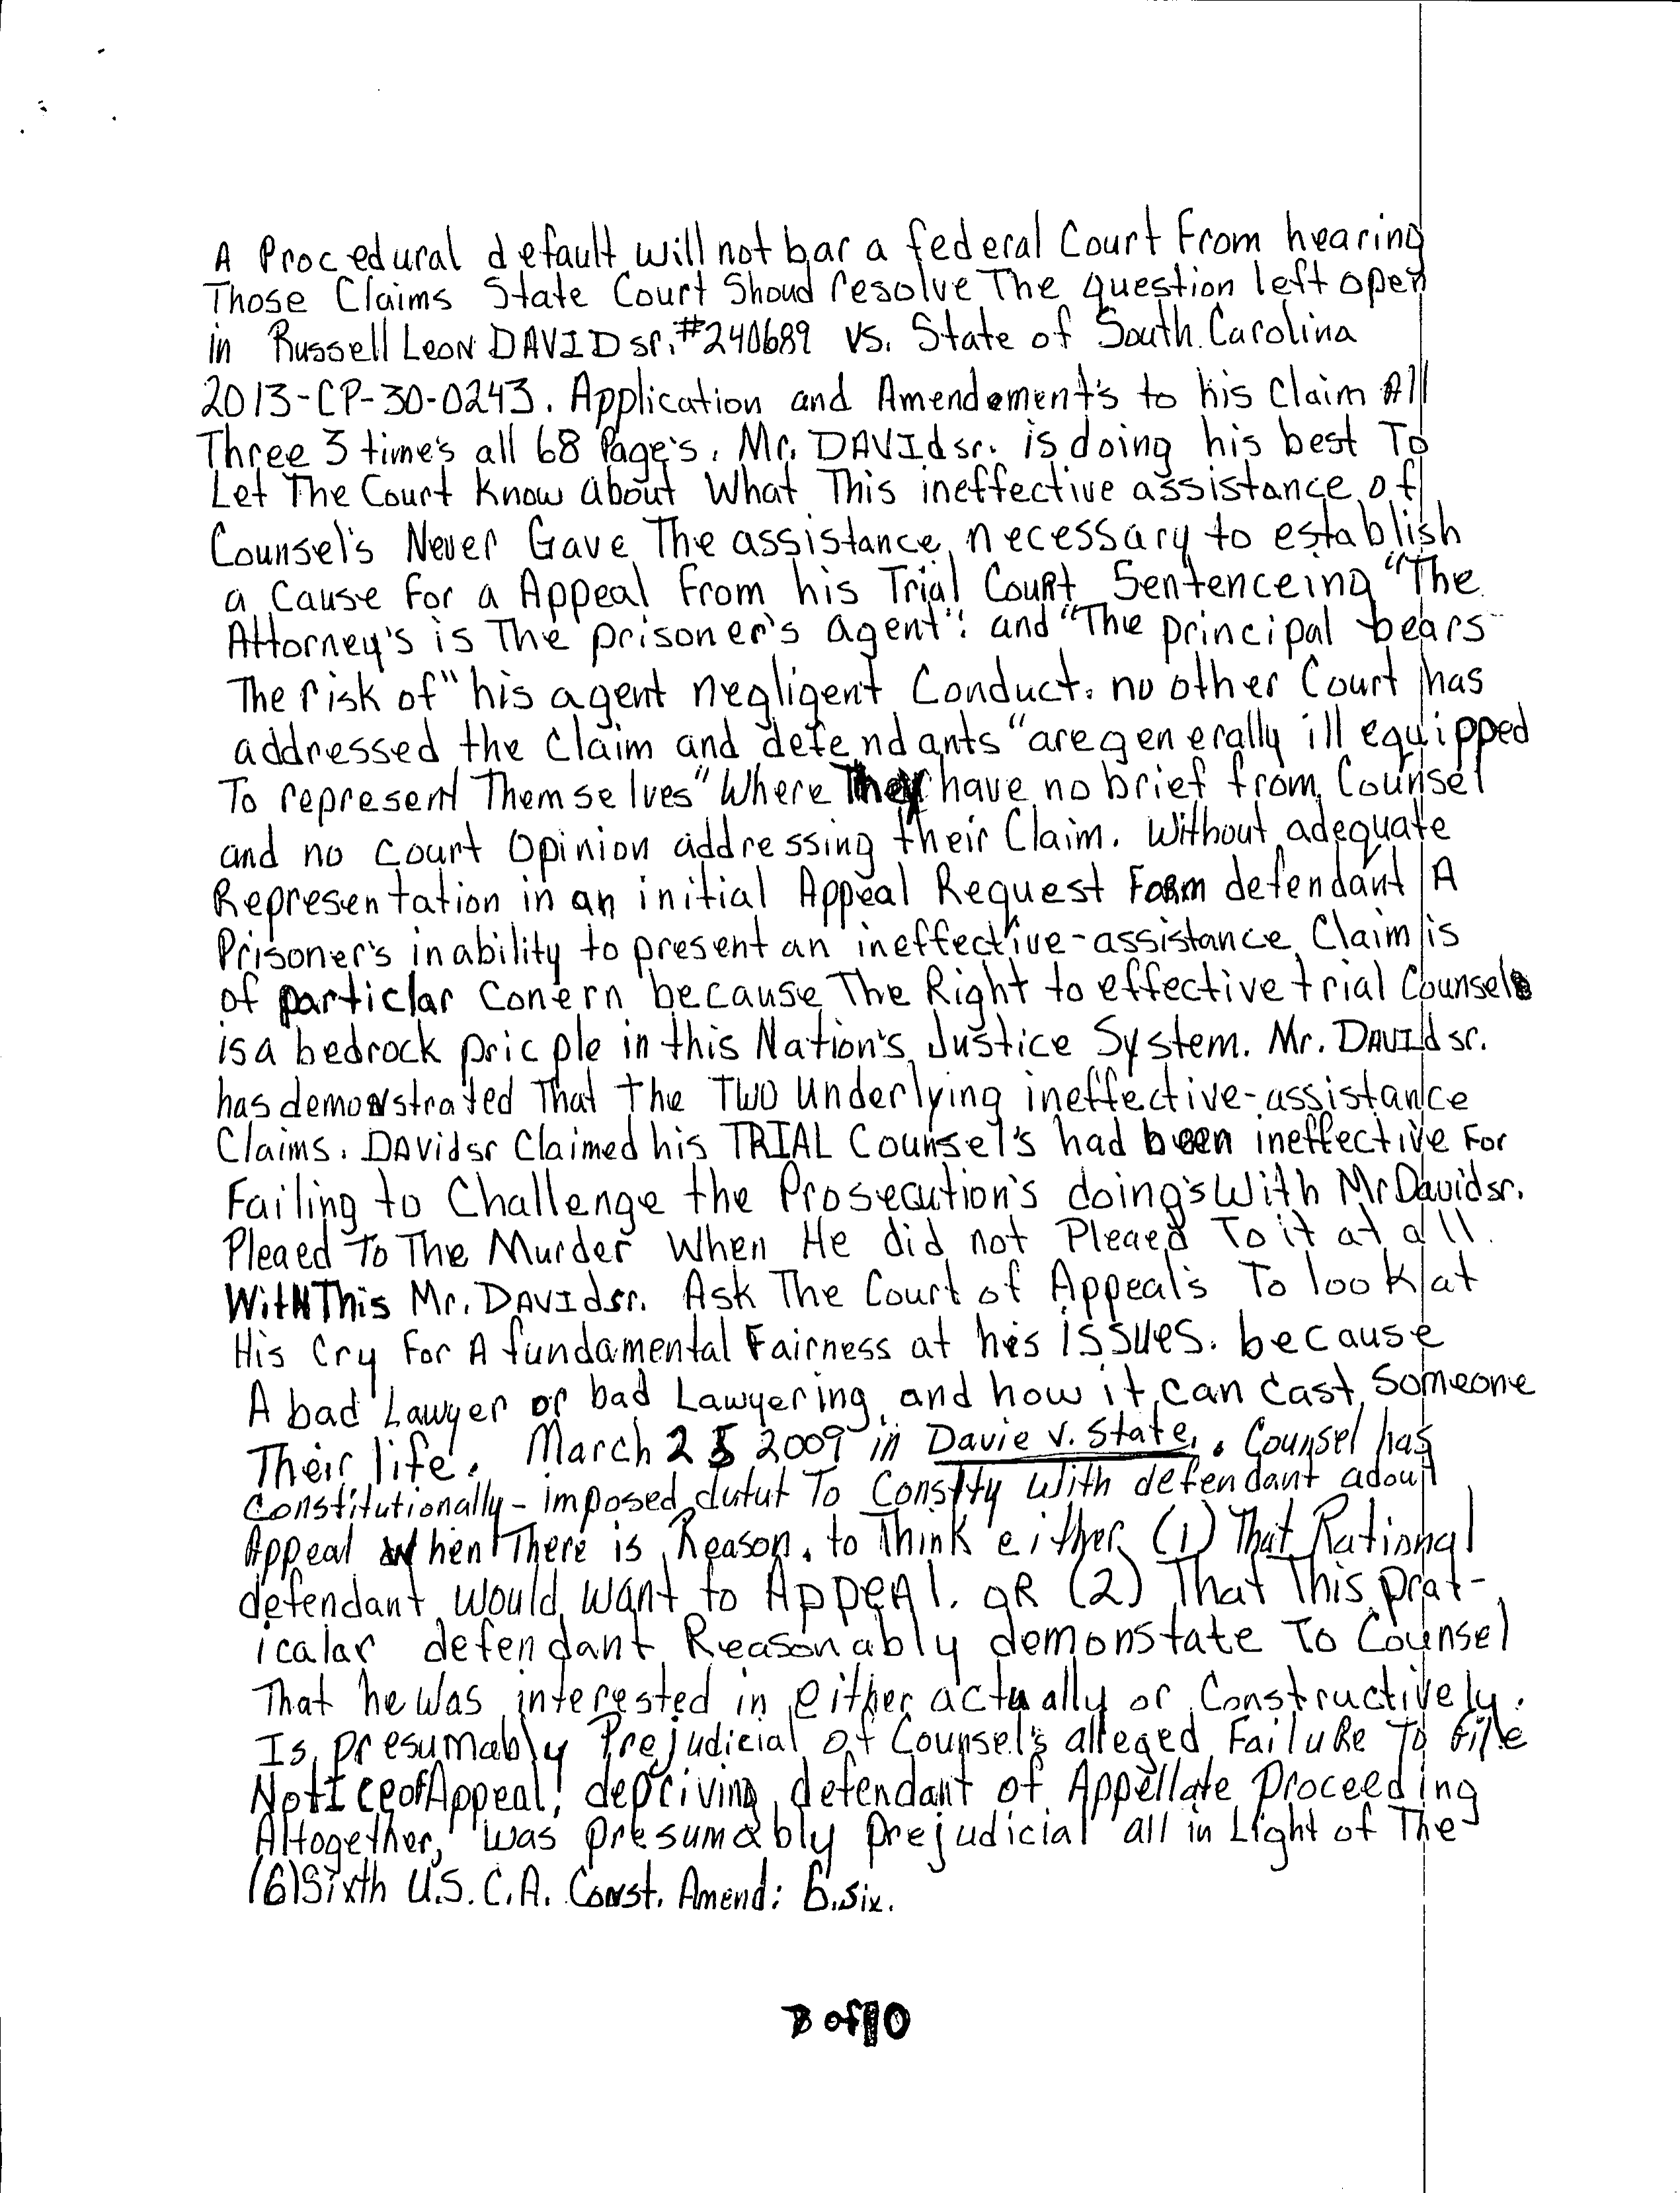 A Procedural default will not bar a federal Court From hearing
Those Claims State Court Shoud resolve The question left open
in Russell Leon DAVID sr. #240689 vs. State of South Carolina
2013-CP-30-0243. Application and Amendement's to his Claim All
Three 3 time's all 68 Page's. Mr. DAVID sr. is doing his best To
Let The Court Know about What This ineffective assistance of
Counsel's Never Gave The assistance necessary to establish
a Cause For a Appeal From his Trial Court Sentenceing "The
Attorney's is The prisoner's agent": and "The principal bears
The risk of" his agent negligent Conduct. no other Court has
addressed the Claim and defendants "are generally ill equipped
To represent Themselves" Where They have no brief from Counsel
and no court Opinion addressing their Claim. Without adequate
Representation in an initial Appeal Request Form defendant A
Prisoner's inability to present an ineffective-assistance Claim is
of particlar Conern because The Right to effective trial Counsels
is a bedrock pricple in this Nation's Justice System. Mr. DAVID sr.
has demonstrated That the Two Underlying ineffective-assistance
Claims. DAVID sr Claimed his TRIAL Counsel's had been ineffective For
Failing to Challenge the Prosecution's doing's With Mr David sr.
Pleaed To The Murder When He did not Pleaed To it at all.
With This Mr. DAVID sr. Ask The Court of Appeal's To look at
His Cry For A fundamental Fairness at his issues. because
A bad Lawyer or bad Lawyering and how it can cast Someone
Their life. March 25 2009 in Davie v. State,. Counsel has
Constitutionally-imposed dutut To Constty With defendant adout
Appeal When There is Reason. to Think either (1) That Rational
defendant would want to AppeAl. OR (2) That This prat-
icalar defendant Reasonably demonstate To Counsel
That he was interested in either actually or Constructively.
Is presumably Prejudicial of Counsel's alleged Failure To File
Notice of Appeal! depriving defendant of Appellate Proceeding
Altogether, was presumably prejudicial all in Light of The
(6) Sixth U.S.C.A. Const. Amend: 6. six.
of 10